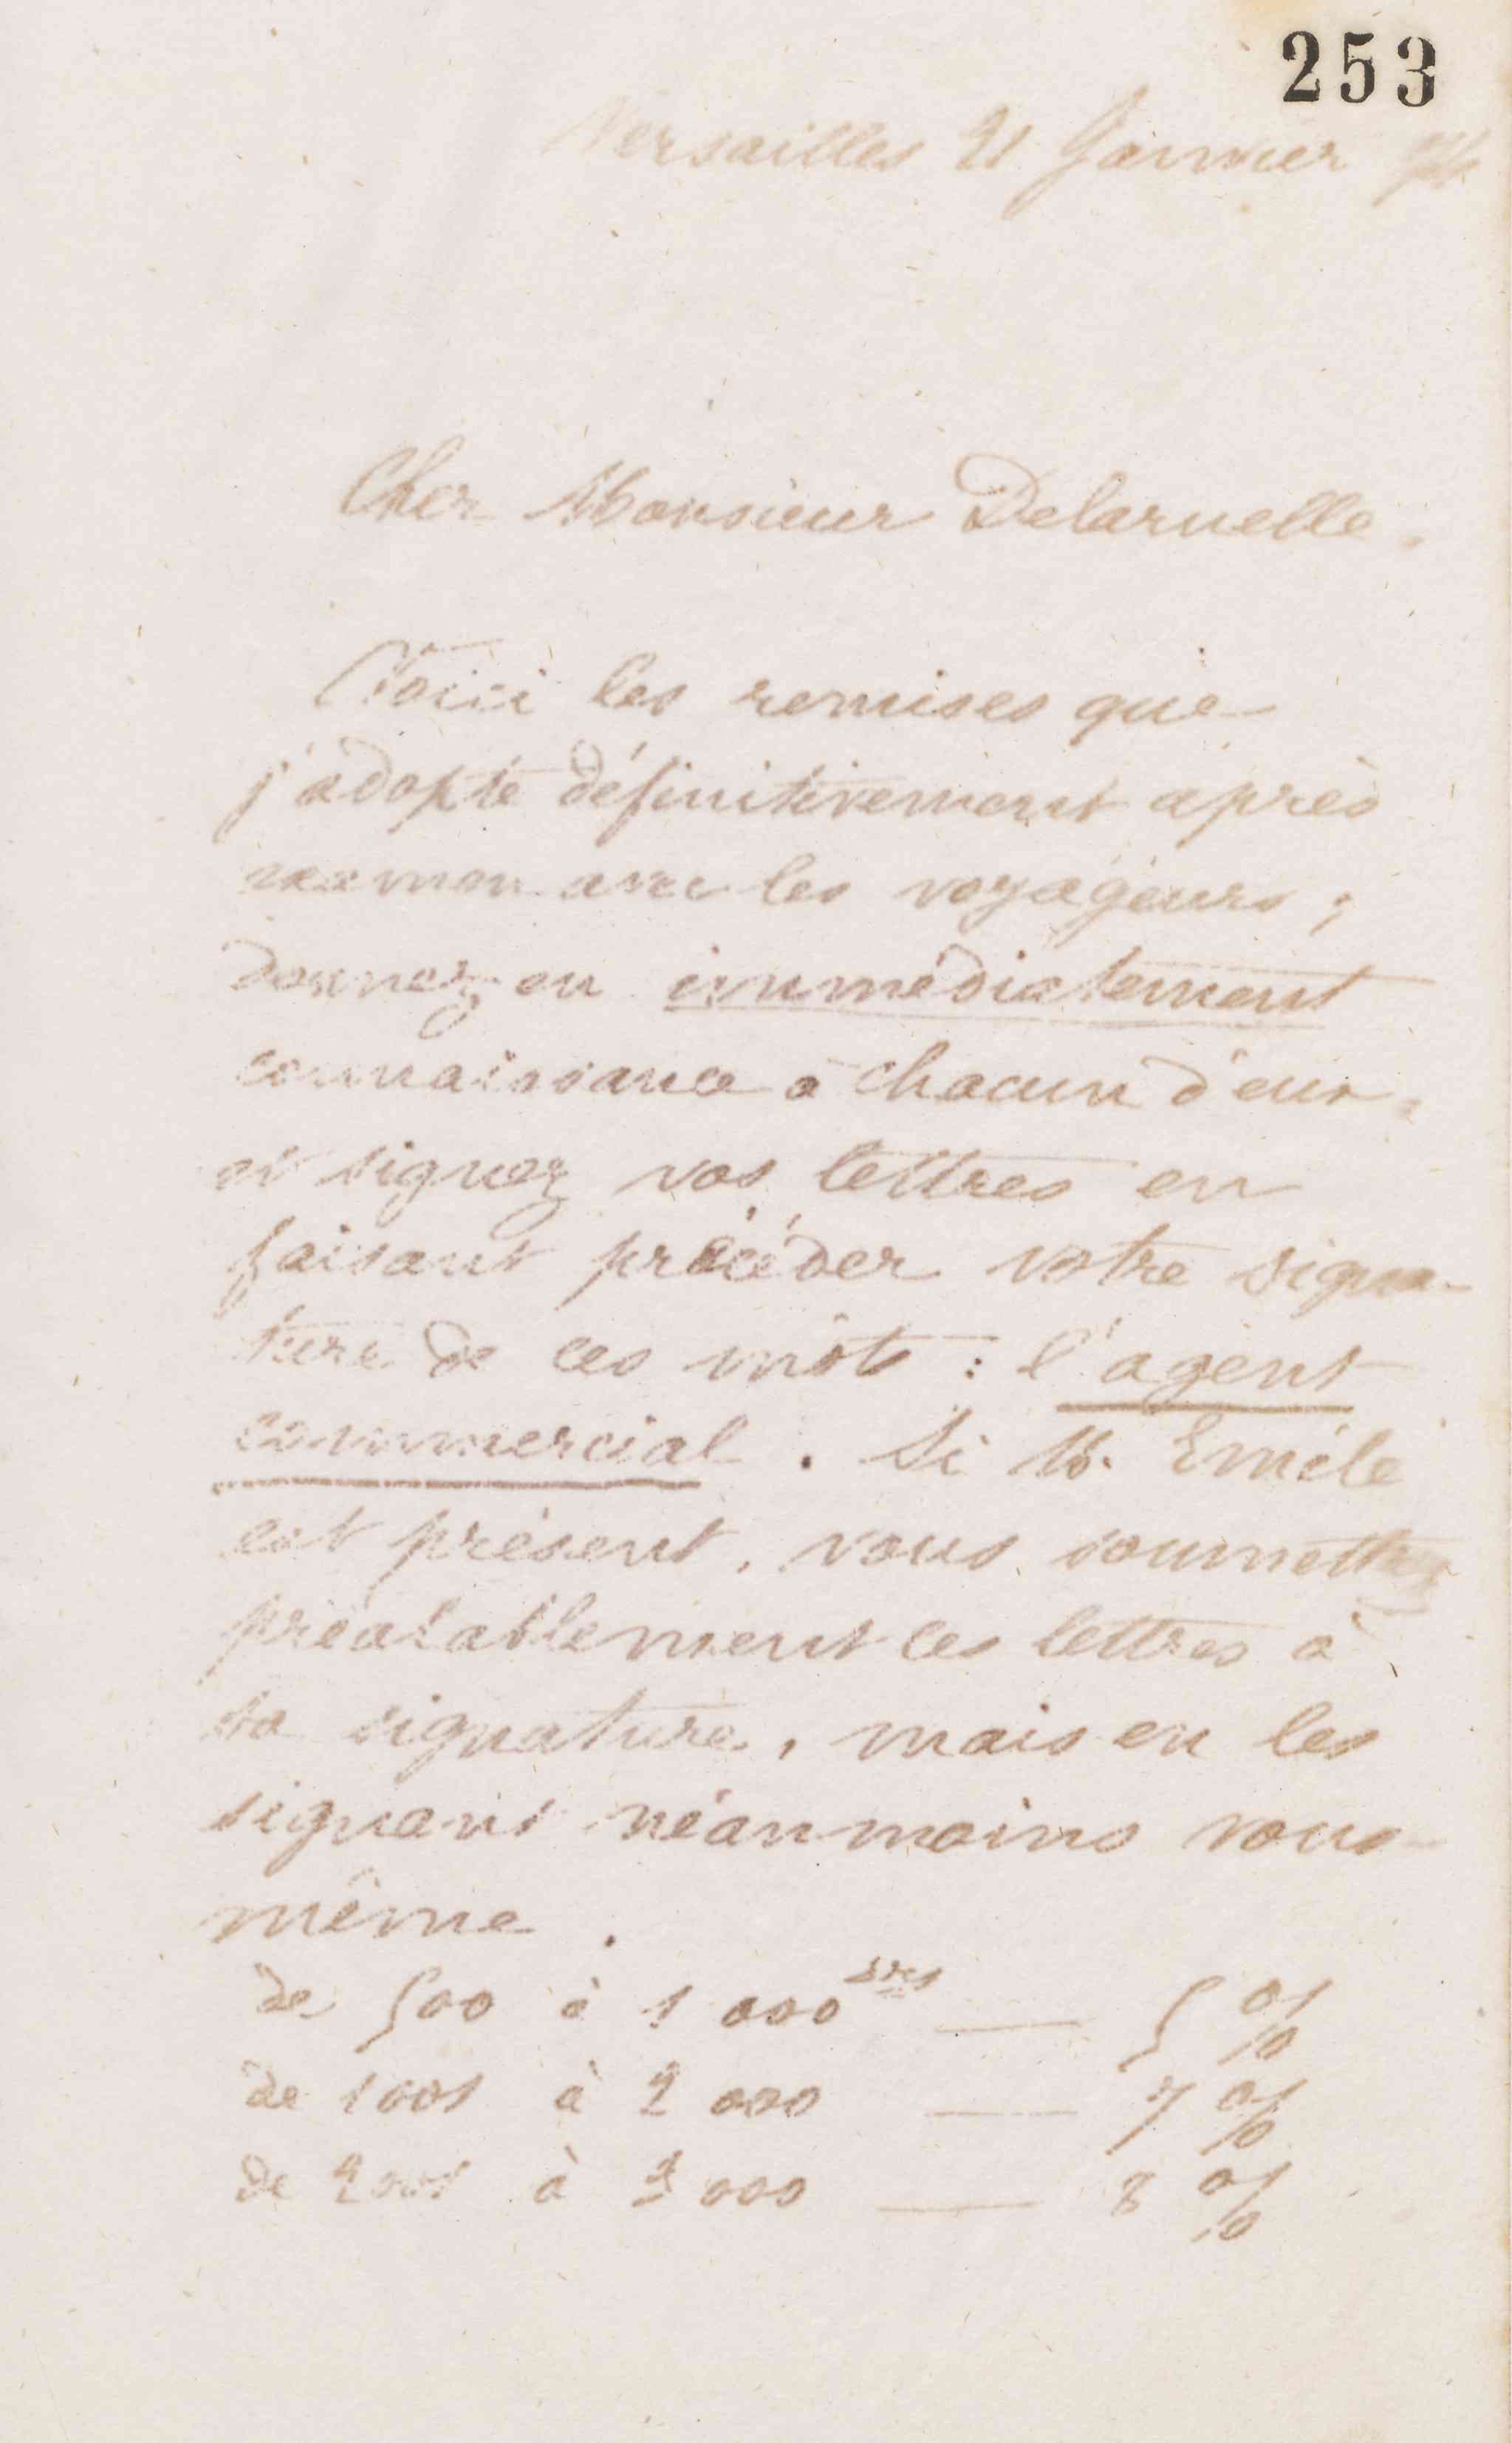 253
Versailles 21 Janvier
Cher Monsieur Delaruelle.
Voici les remises que
j'adopte définitivement après
examen avec les voyageurs ;
donnez en immédiatement
connaissance à chacun d'eux,
et signez vos lettres en
faisant précéder votre signa-
ture de ces mots : l'agent
commercial . Si M. Emile
est présent, vous soumettrez
préalablement ces lettres à
sa signature, mais en les
signant néanmoins vous-
même .
de 500 à 1 000 — 5 %
de 1001 à 2 000 — 7 %
de 2001 à 3 000 — 8 %